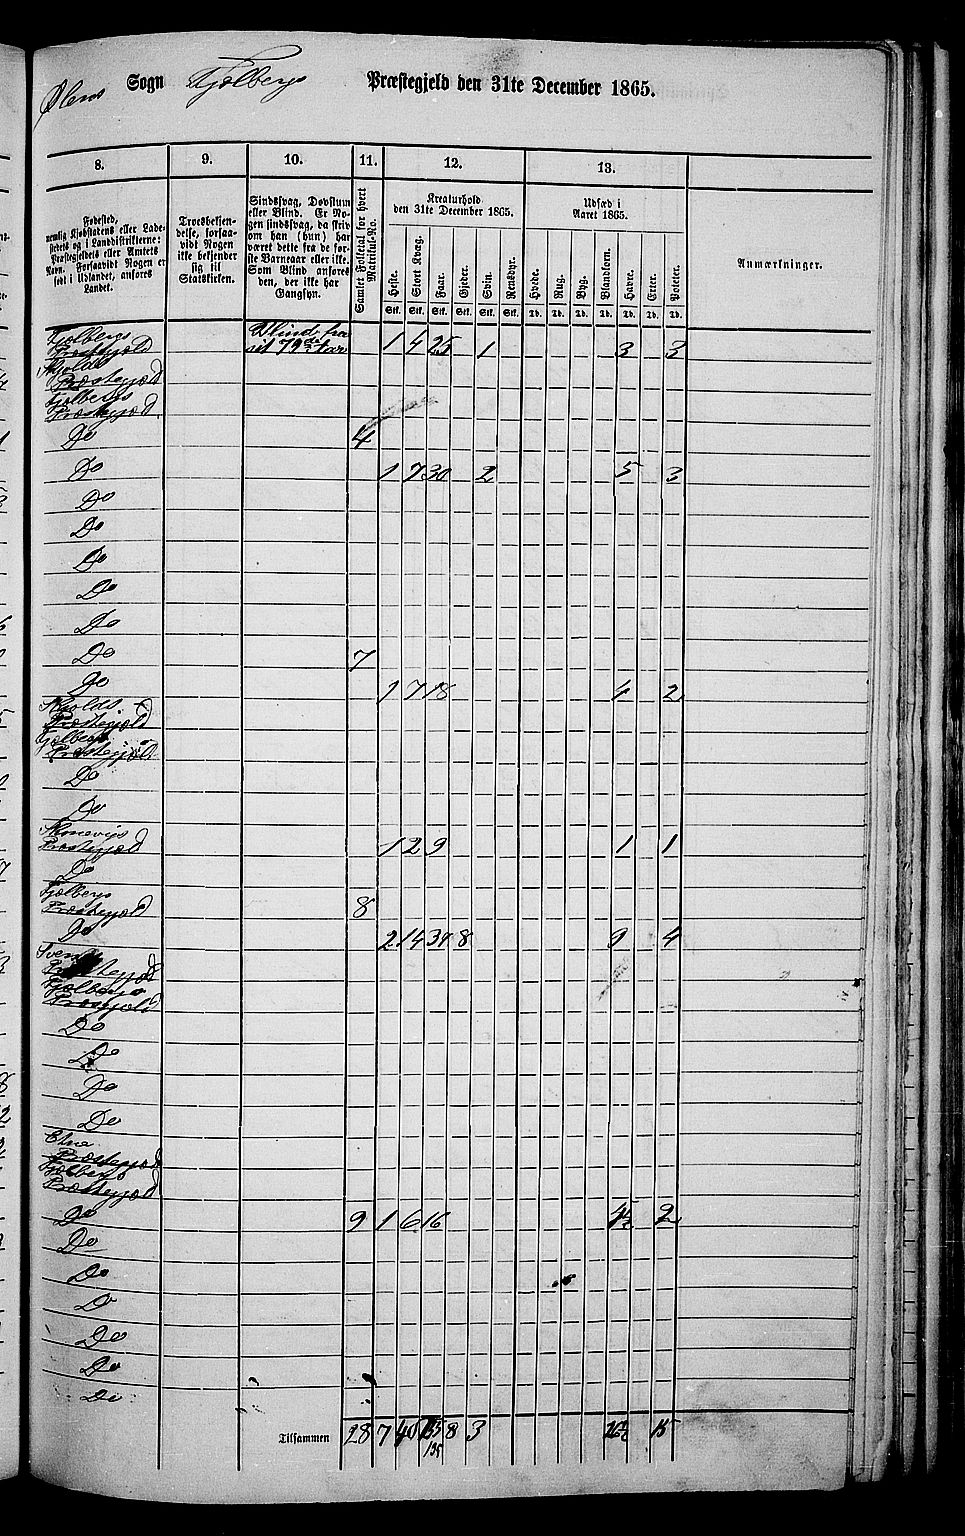 Ølens Sogn Fjelbergs Præstegjeld den 31te December 1865.
8. 9. 10. 11. 12. 13.
Fødested,
nemlig Kjøbstadens eller Lade-
stedets og i Landdistrikterne:
Præstegjeldets eller Amtets
Navn. Forsaavidt Nogen er
født i Udlandet, anføres
Landet.
Troesbekjen-
delse, forsaa-
vidt Nogen
ikke bekjender
sig til
Statskirken.
Sindssvag, Døvstum
eller Blind. Er No-
gen sindssvag, da skriv
om han (hun) har
været dette fra de før-
ste Barneaar eller ikke.
Som Blind anføres
den, der ikke har
Gangsyn.
Samlet Folketal for hvert
Matrikul-No.
Kreaturhold
den 31te December 1865.
Heste. Stort Kvæg. Faar. Gjeder. Sviin. Rensdyr.
Stk. Stk. Stk. Stk. Stk. Stk.
Udsæd i
Aaret 1865.
Hvede. Rug. Byg. Blandkorn. Havre. Erter. Poteter.
Td. Td. Td. Td. Td. Td. Td.
Anmærkninger.
Fjelbergs Blind fra
Præstegjeld sit 79de Aar 1 4 25 1 3 3
Skjolds
Præstegjeld
Fjelbergs
Præstegjeld
Do 4
Do 1 7 30 2 5 3
Do
Do
Do
Do
Do
Do 7
Do 1 7 18 4 2
Skjolds
Præstegjeld
Fjelbergs
Præstegjeld
Do
Do
Skonevigs
Præstegjeld 1 2 9 1 1
Do
Fjelbergs
Præstegjeld 8
Do 2 14 37 8 9 4
Præstegjeld
Fjelbergs
Præstegjeld
Do
Do
Do
Do
Etne
Præstegjeld
Fjelbergs
Præstegjeld
Do 9 1 6 16 4½ 2
Do
Do
Do
Do
Do
Do
Tilsammen 28 7 40 135 8 3 26½ 15
135